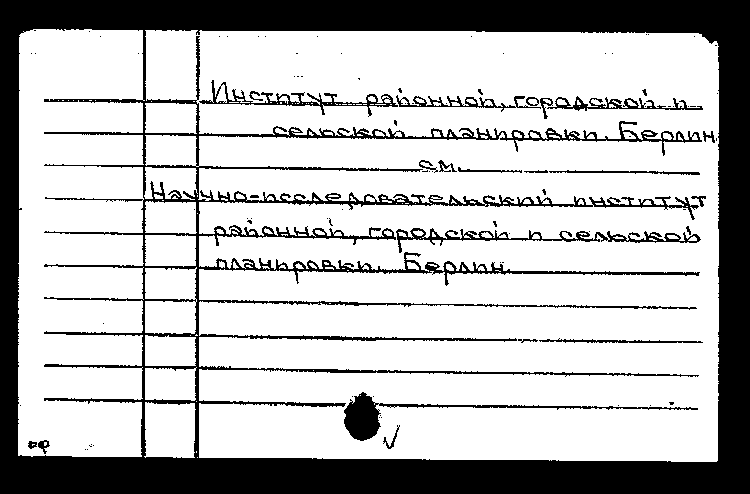 Институт районной, городской и
сельской планировки. Берлин
см.
Научно-исследовательский институт
районной, городской и сельской
планировки. Берлин.